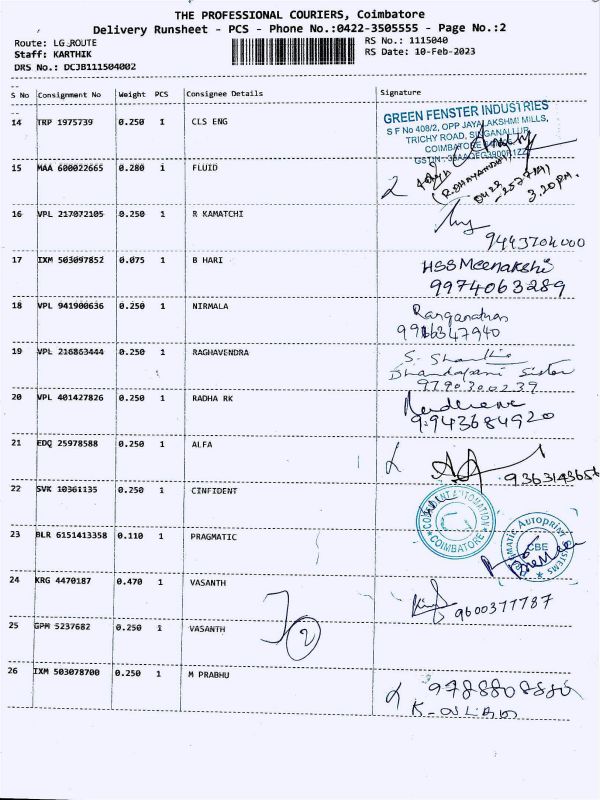 THE PROFESSIONAL COURIERS, Coimbatore
Delivery Runsheet - PCS - Phone No.:0422-3505555 - Page No.:2
Route: LG.ROUTE
RS No.: 1115040
Staff: KARTHIK
RS Date: 10-Feb-2023
DRS No.: DCJB111504002
S No Consignment No Weight PCS Consignee Details Signature
14 TRP 1975739 0.250 1 CLS ENG
GREEN FENSTER INDUSTRIES
S F No 408/2, OPP JAYALAKSHMI MILLS,
TRICHY ROAD, SINGANALLUR,
COIMBATORE
15 MAA 600022665 0.280 1 FLUID
3.20 PM.
16 VPL 217072105 0.250 1 R KAMATCHI
9443704000
17 IXM 503097852 0.075 1 B HARI
HSS Meenakshi
9974063289
18 VPL 941900636 0.250 1 NIRMALA
Ranganathan
9916347940
19 VPL 216863444 0.250 1 RAGHAVENDRA
Dhandapani Sister
9790300239
20 VPL 401427826 0.250 1 RADHA RK
9943684920
21 EDQ 25978588 0.250 1 ALFA
9363143656
22 SVK 10361135 0.250 1 CINFIDENT
AUTOMATION
COIMBATORE
23 BLR 6151413358 0.110 1 PRAGMATIC
PRAGMATIC AUTOPRINT SYSTEMS
CBE
24 KRG 4470187 0.470 1 VASANTH
9600377787
25 GPM 5237682 0.250 1 VASANTH
2
26 IXM 503078700 0.250 1 M PRABHU